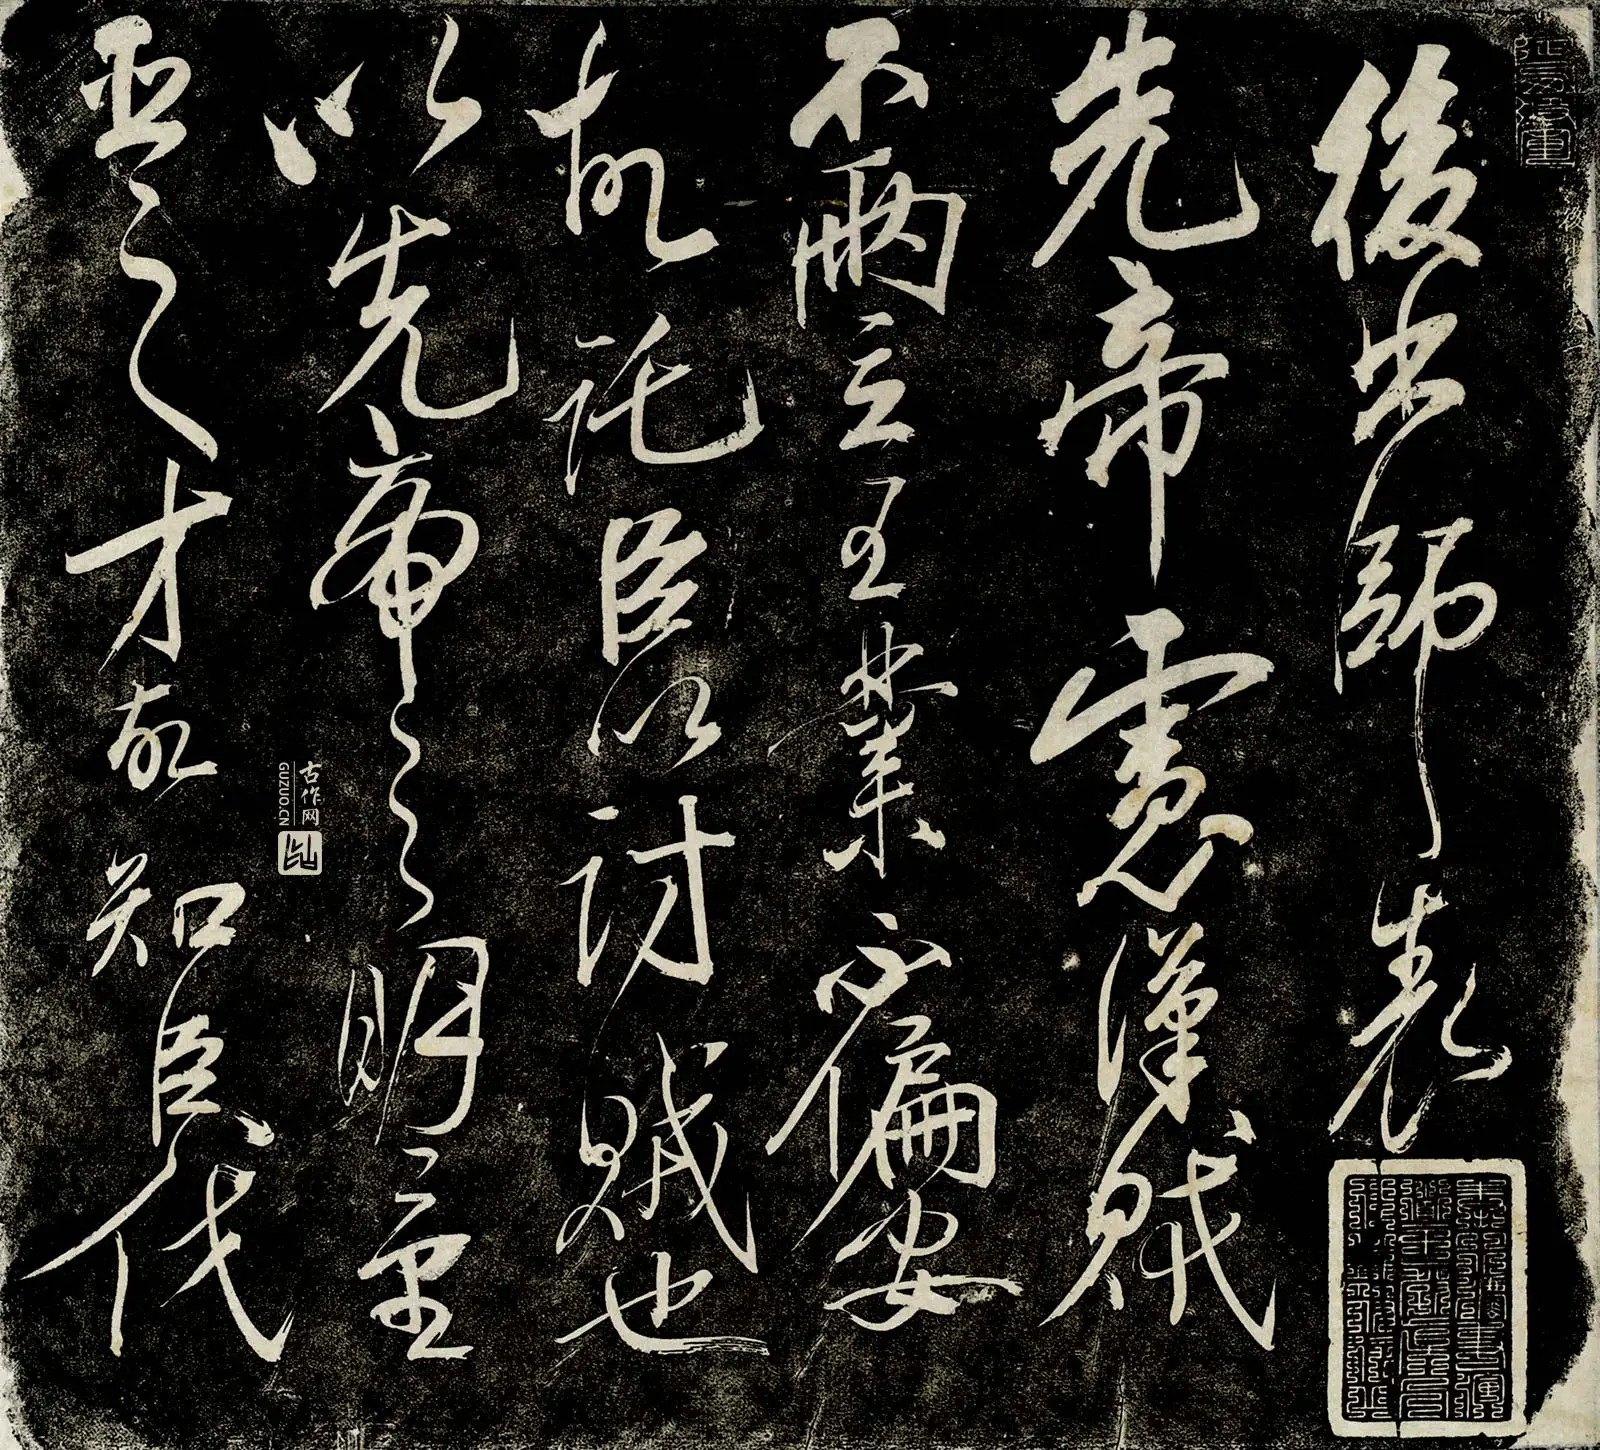 後出師表
先帝慮漢賊
不兩立王業不偏安
故託臣以討賊也
以先帝之明量
臣之才故知臣伐
古作网
GUZUO.CN